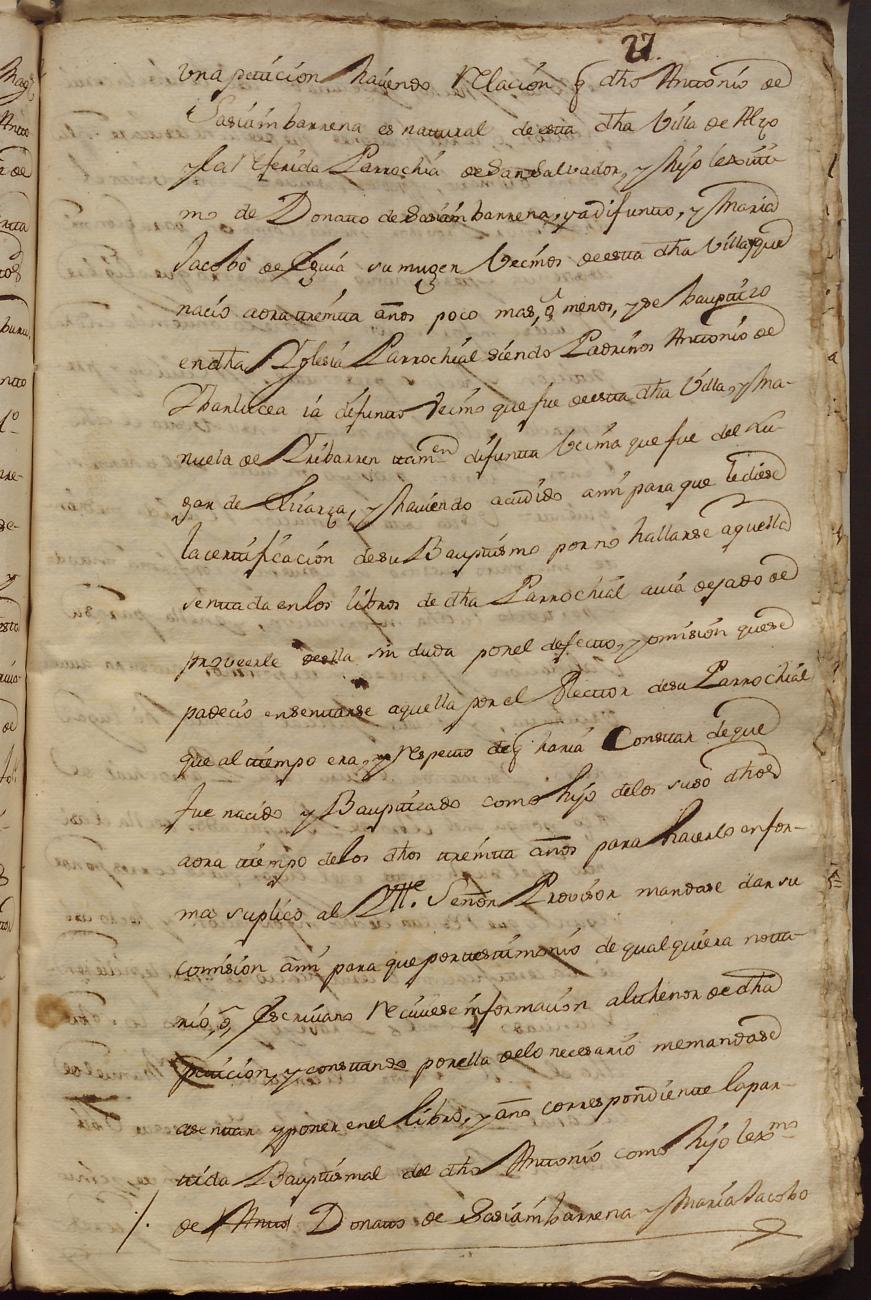 27.
vna peticion haciendo Relacion q̃ dho Antonio de
Sasiambarrena es natural de esta dha Villa de Alzo
y la Referida Parrochia de San Saluador, y hijo lexitti-
mo de Donato de Sasiambarrena, ya difunto, y Maria
Jacobo de Eguia su muger Vecinos de esta dha Villa, y que
nacio aora treinta años poco mas, ô menos, y se bauptizo
en dha Iglesia Parrochial siendo Padrinos Antonio de
ia defunto Vecino que fue de esta dha Villa, y Ma-
nuela de Iribarren ttamen difuntta Vecina que fue del Lu-
gar de , y haviendo acudido a mi para que le diese
la certificacion de su Bauptismo por no hallarse aquella
senttada en los libros de dha Parrochial auia dejado de
proveerle de ella sin duda por el defecto, y omision que se
padecio en senttarse aquella por el Rector de su Parrochial
que al tiempo era, y respecto de q̃ haria Constar de que
fue nacido y Bauptizado como hijo de los suso dhos
aora tiempo de los dhos treintta años para hacerlo en for-
ma suplico al Ill.e Señor Provisor mandase dar su
comision a mi para que por testimonio de qualquiera notta-
rio, ô Escriuano Reciuiese informacion al thenor de dha
peticion, y constando por ella de lo necesario me mandase
asenttar y poner en el libro, y año correspondiente la par-
ttida Bauptismal del dho Anttonio como hijo lexmo
de Antto Donato de Sasiambarrena y Maria Jacobo